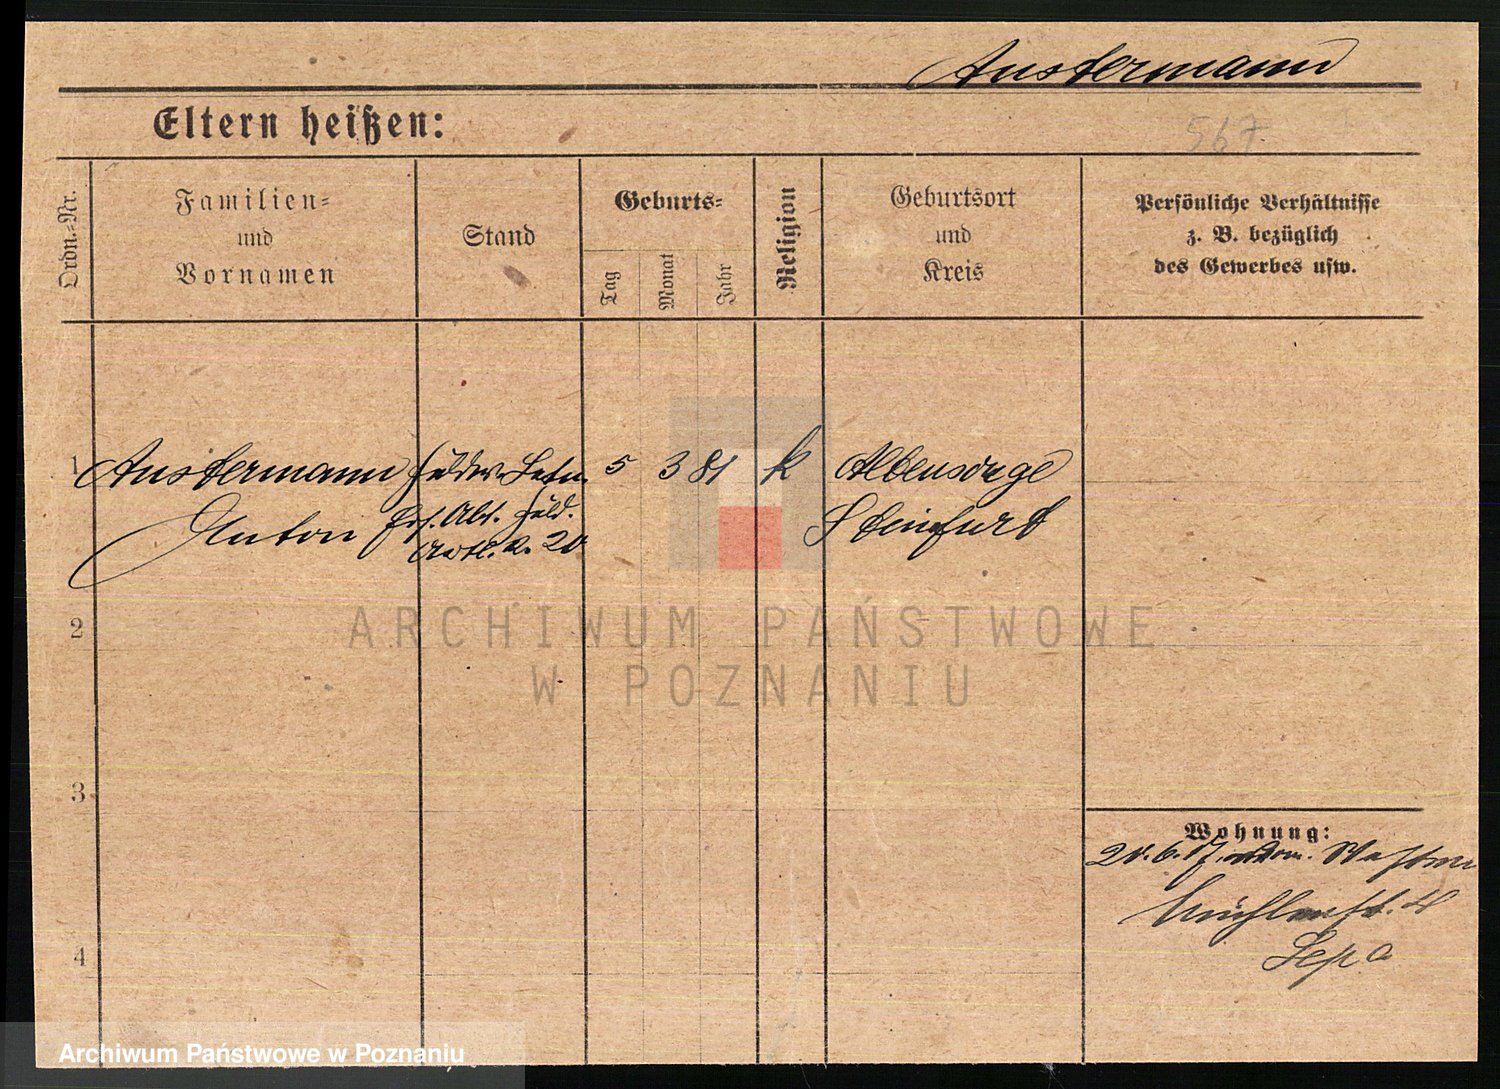 Austermann
Eltern heißen:
567
Ordn.-Nr.
Familien-
und
Vornamen
Stand
Geburts-
Tag
Monat
Jahr
Religion
Geburtsort
und
Kreis
Persönliche Verhältnisse
z. B. bezüglich
des Gewerbes usw.
1 Austermann 5 3 81 k
Anton Ers. Abt. Feld.
Steinfurt
Artl. R. 20
2
3
4
Wohnung:
20.6.17
Mühlenstr. 4
ARCHIWUM PAŃSTWOWE
W POZNANIU
Archiwum Państwowe w Poznaniu